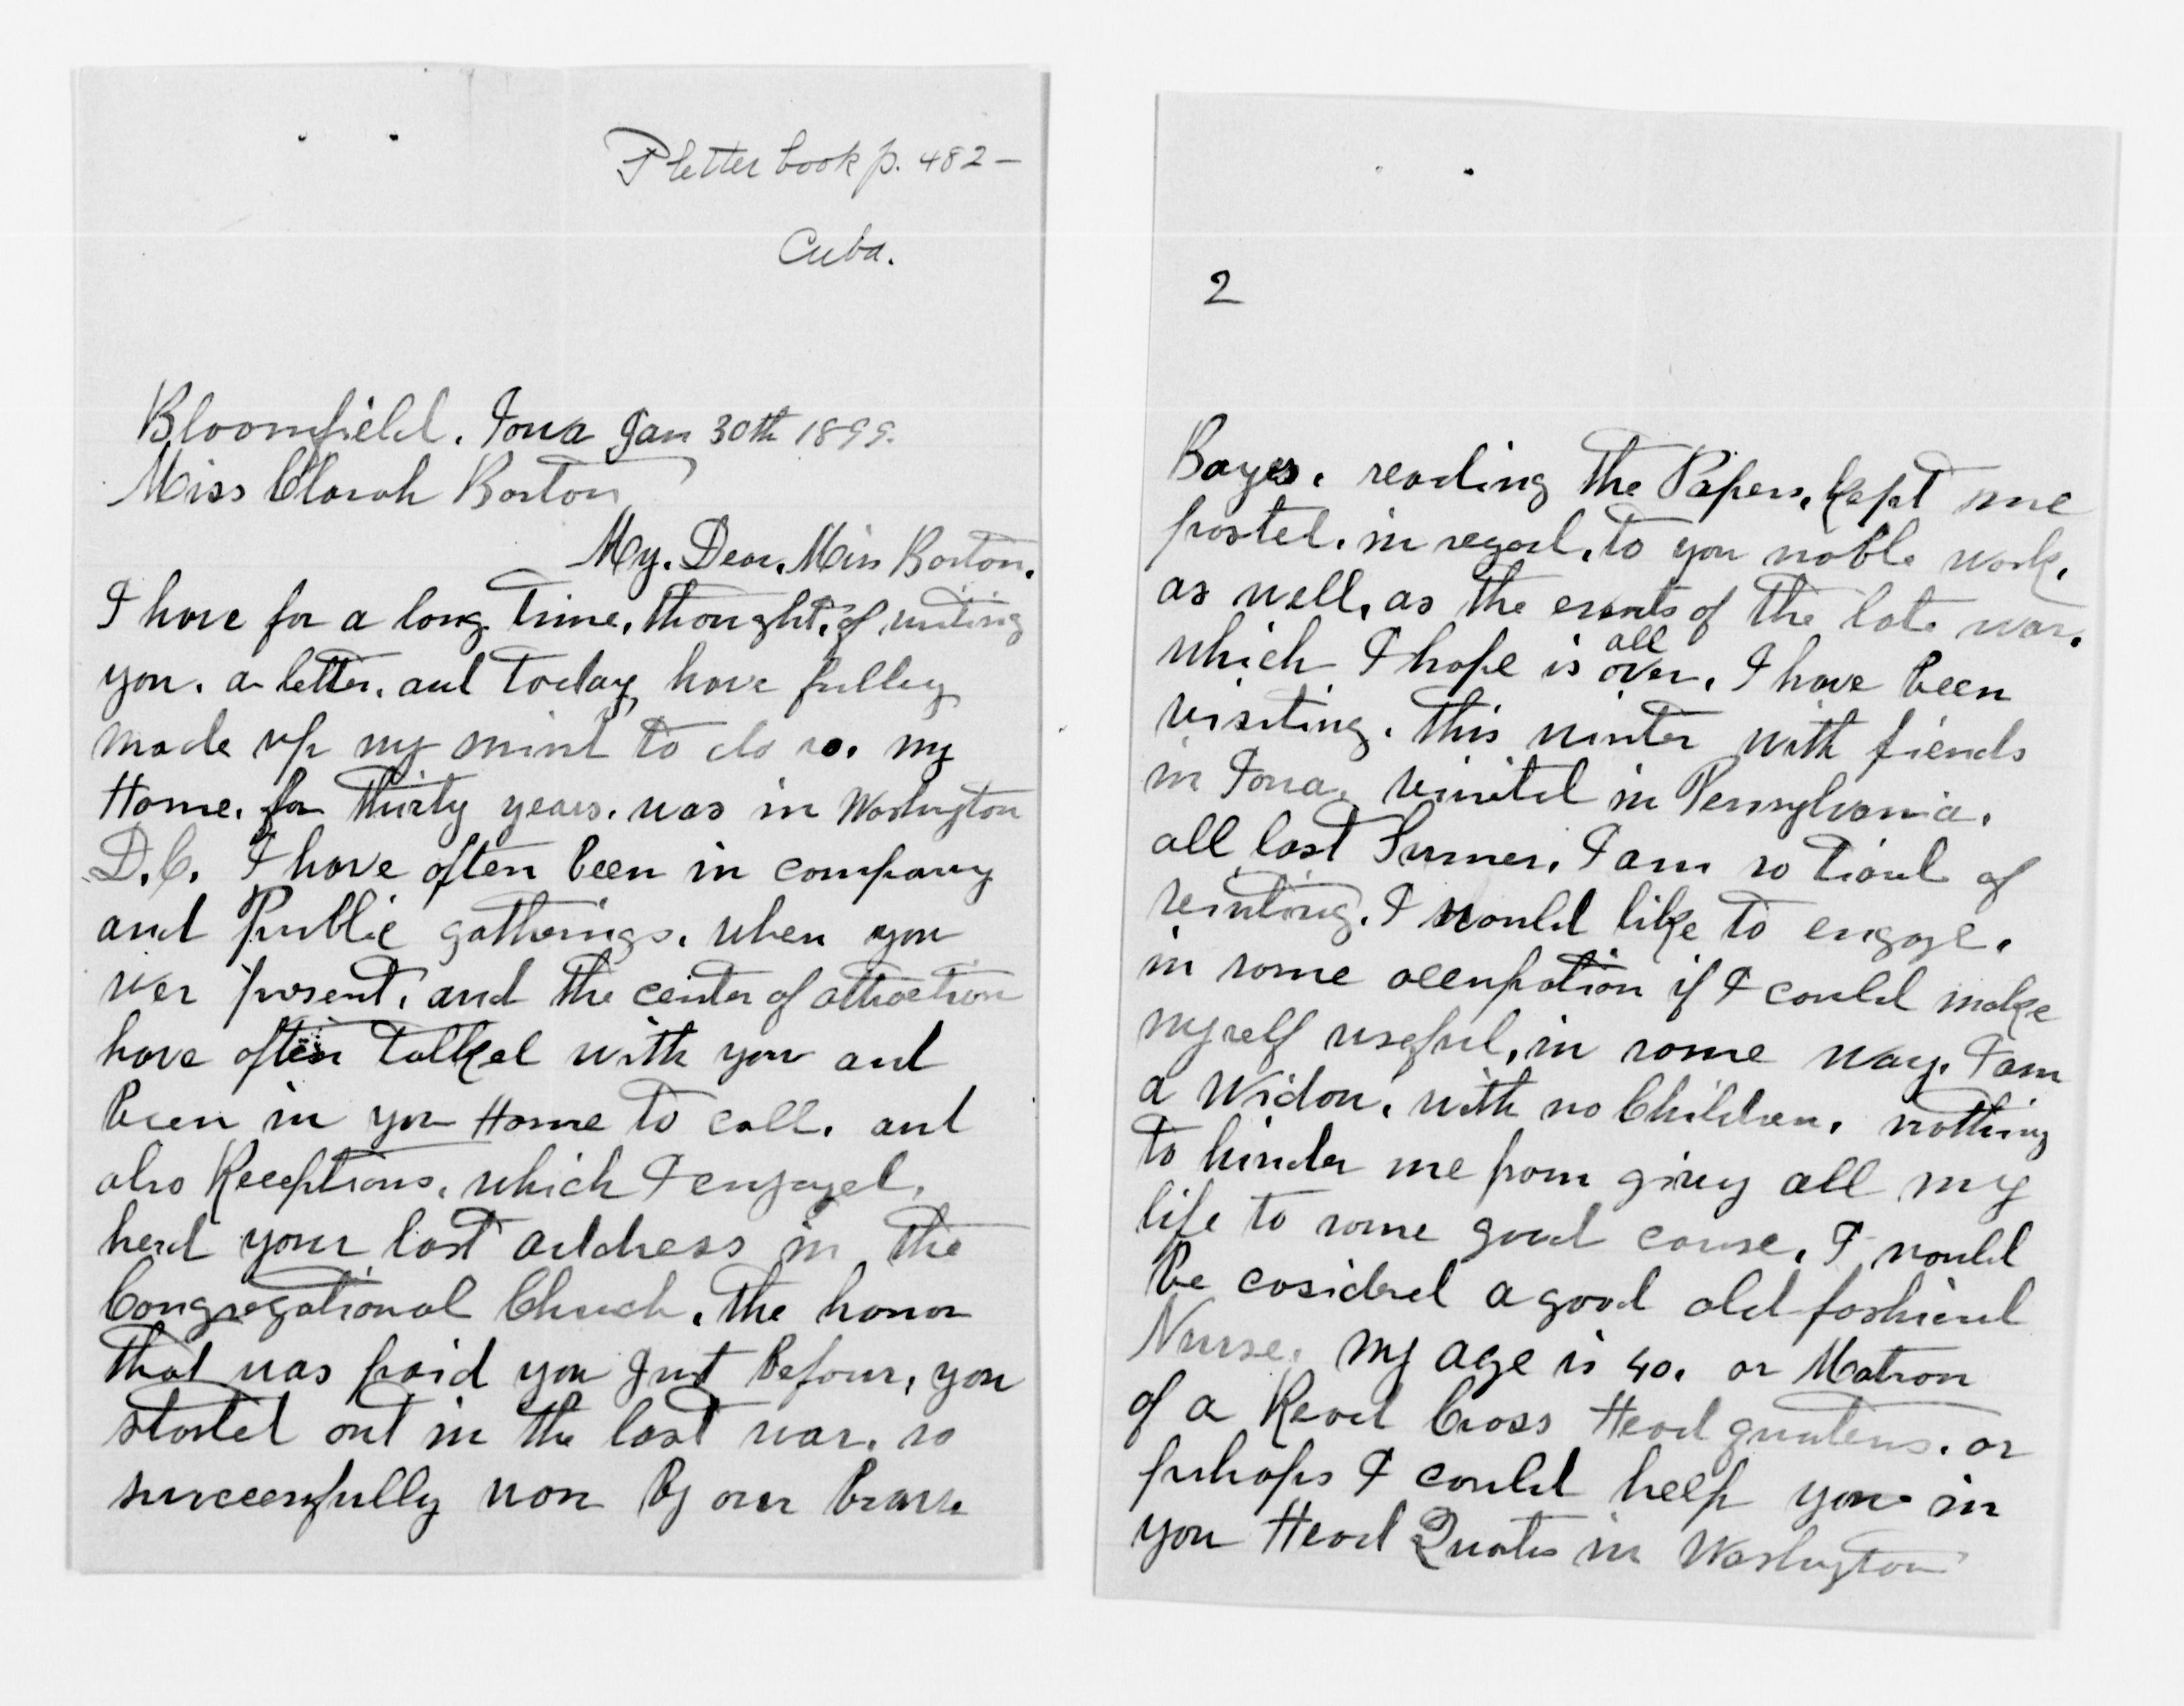 P letter book p. 482 –
Cuba.
Bloomfield. Iowa Jan 30th 1899.
Miss Clarah Barton
My. Dear. Miss Barton.
I have for a long. time. thought. of writing
you. a letter. and today have fulley
made up my mind to do so. my
Home. for thirty years. was in Washington
D.C. I have often been in company
and Public gatherings. when you
wer present. and the center of attraction
have often talked with you and
been in you Home to call. and
also Receptions. which I enjoyed.
herd your last address in the
Congregational Church. the honor
that was paid you Just befour, you
started out in the last war. so
succeenfully won by our brave
2
Boyes. reading the Papers. kept me
posted. in regard. to you noble work.
as well. as the events of the late war.
which I hope is all over. I have been
visiting. this winter with fiends
in Iowa. visited in Pennsylvania.
all last Sumer. I am so tierd of
visiting. I would like to engage.
in some occupation if I could make
myself useful. in some way. I am
a Widow. with no Children. nothing
to hinder me from giveing all my
life to some good cause. I would
be cosidered a good old fashiend
Nurse. my age is 40. or Matron
of a Read Cross Head quaters. or
perhaps I could help you in
you Head Quates in Washington